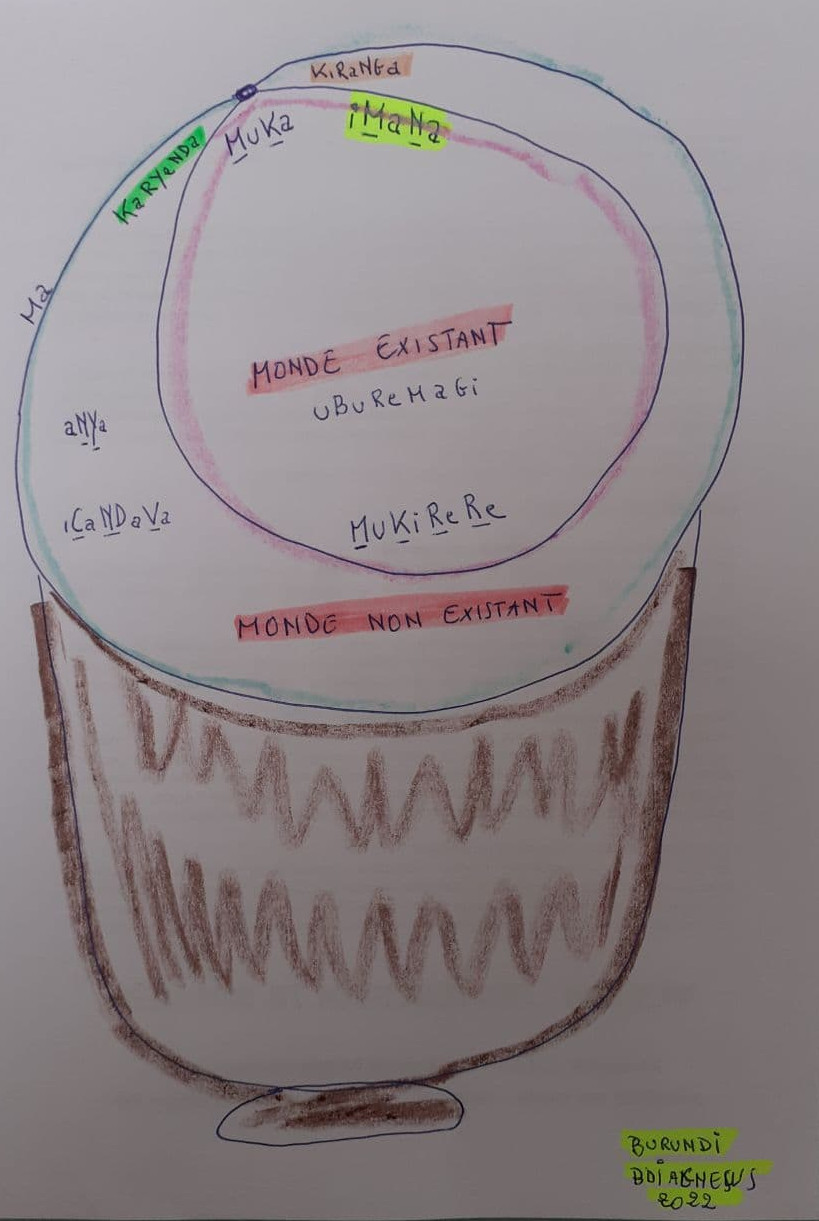 KiRaNGa
iMaNa
MuKa
KaRYeNDa
Ma
MONDE EXISTANT
uBuReMaGi
aNYa
iCaNDaVa
MuKiReRe
MONDE NON EXISTANT
BURUNDi
2022